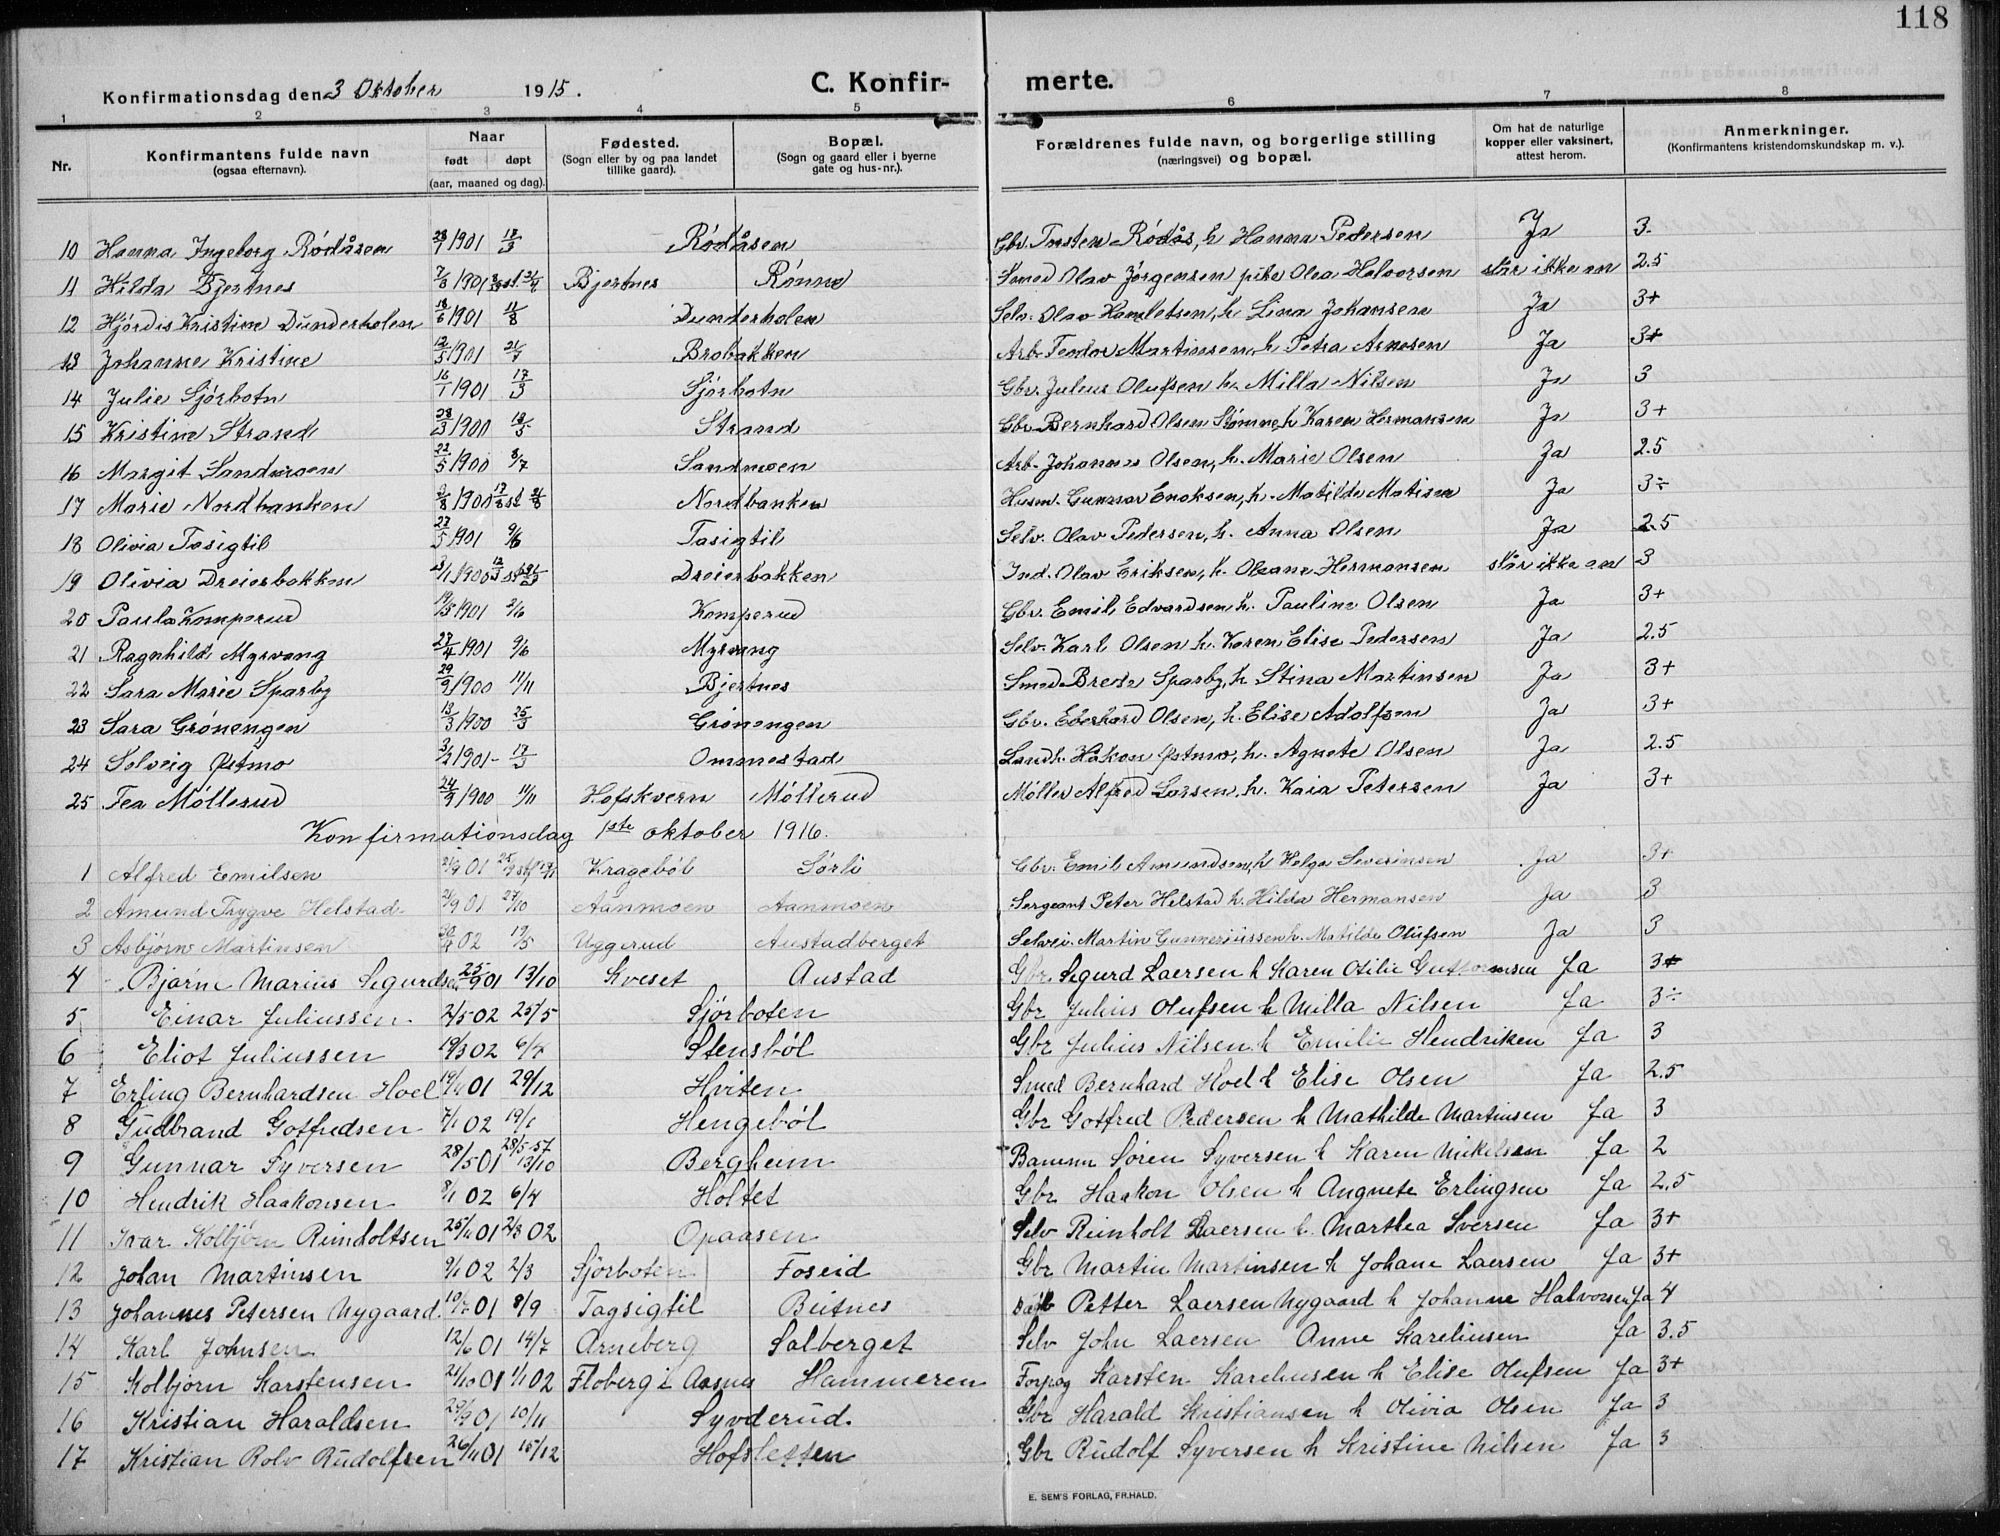 118
Konfirmationsdag den 3 Oktober 1915. C. Konfirmerte.
1 2 3 4 5 6 7 8
Nr. Konfirmantens fulde navn (ogsaa efternavn). Naar født døpt (aar, maaned og dag). Fødested. (Sogn eller by og paa landet tillike gaard). Bopæl. (Sogn og gaard eller i byerne gate og hus-nr.). Forældrenes fulde navn, og borgerlige stilling (næringsvei) og bopæl. Om hat de naturlige kopper eller vaksinert, attest herom. Anmerkninger. (Konfirmantens kristendomskundskap m. v.).
10 Hanna Ingeborg Rødåsen 28/1 1901 17/3 Rødåsen Gbr. Torsten Rødås, h Hanna Pedersen Ja 3.
11 Hilda Bjertnes 7/3 1901 Bjertnes Rønne Smed Olav Jørgensen pike Olea Halvorsen står ikke an 2.5
12 Hjördis Kristine Dunderholen 18/6 1901 11/8 Dunderholen Selv. Olav Hamletsen, h Lina Johansen Ja 3+
13 Johanne Kristine 12/5 1901 21/7 Brobakken Arb. Teodor Martinsen, h Petra Arnesen Ja 3+
14 Julie Sjörbotn 16/1 1901 17/3 Sjörbotn Gbr. Julius Olufsen h. Milla Nilsen Ja 3
15 Kristine Strand 28/3 1900 13/5 Strand Gbr. Bernhard Olsen h Karen Hermansen Ja 3+
16 Margit Sandmoen 22/5 1900 8/7 Sandmoen Arb. Johannes Olsen, h. Marie Olsen Ja 2.5
17 Marie Nordbanken 9/8 1900 Nordbanken Husm. Gunnar Enoksen, h. Matilde Matisen Ja 3÷
18 Olivia Tasigtil 27/5 1901 9/6 Tasigtil Selv. Olav Pedersen, h. Anna Olsen Ja 2.5
19 Olivia Dreierbakken 1900 Dreierbakken Ind. Olav Eriksen, h. Oleane Hermansen står ikke an 3
20 Paula Komperud 19/5 1901 2/6 Komperud Gbr. Emil Edvardsen h. Pauline Olsen Ja 3+
21 Ragnhild Myrvang 27/4 1901 9/6 Myrvang Selv. Karl Olsen h. Karen Elise Pedersen Ja 2.5
22 Sara Marie Sparby 29/9 1900 11/11 Bjertnes Smed Brede Sparby, h Stina Martinsen Ja 3+
23 Sara Grönengen 13/3 1900 25/3 Grönengen Gbr. Eberhard Olsen, h. Elise Adolfsen Ja 3+
24 Solveig Østmo 3/2 1901 - 17/3 Ommestad Landh. Håkon Østmo, h. Agnete Olsen Ja 2.5
25 Tea Möllerud 24/9 1900 11/11 Hofskvern Möllerud Møller Alfred Larsen, h. Kaia Petersen Ja 3+
Konfirmationsdag 1ste oktober 1916.
1 Alfred Emilsen 21/9 01 Krageböl Sørli Gbr. Emil Amundsen, h Helga Severinsen Ja 3+
2 Amund Trygve Helstad 21/9 01 27/10 Aanmoen Aanmoen Sergeant Peter Helstad h. Hilda Hermansen Ja 3
3 Asbjörn Martinsen 02 19/5 Uggerud Austadberget Selvei. Martin Gunneriussen h. Matilde Olufsen Ja 3
4 Bjarne Marius Segurdsen 25/9 01 13/10 Kveset Austad Gbr. Segurd Laersen h Karen Otilie Guttormsen Ja 3+
5 Einar Juliussen 2/5 02 25/5 Sjörboten Gbr Julius Olufsen h Milla Nilsen Ja 3÷
6 Eliot Juliussen 19/3 02 6/4 Stensböl Gbr Julius Nilsen h Emilie Hendriken Ja 3
7 Erling Bernhardsen Hoel 19/11 01 29/12 Hviten Smed Bernhard Hoel h Elise Olsen Ja 2.5
8 Gudbrand Gotfredsen 7/1 02 19/1 Hengeböl Gbr Gotfred Pedersen h Mathilde Martinsen Ja 3
9 Gunnar Syversen 28/5 01 13/10 Bergheim Banemn Sören Syversen h Karen Mikelsen Ja 2
10 Hendrik Haakonsen 8/1 02 6/4 Holtet Gbr Haakon Olsen h Angnete Erlingsen Ja 2.5
11 Ivar Kolbjörn Reinholtsen 25/11 01 2/3 02 Opaasen Selv Reinholt Laersen h. Marthea Sversen Ja 3+
12 Johan Martinsen 9/1 02 2/3 Sjörboten Foseid Gbr Martin Martinsen h Johane Laersen Ja 3+
13 Johannes Petersen Nygaard 19/7 01 8/9 Tagsigtil Beitnes Petter Laersen Nygaard h Johanne Halvorsen Ja 4
14 Karl Johnsen 12/6 01 14/7 Arneberg Salberget Selv John Laersen Anne Karelinsen Ja 3.5
15 Kolbjörn Karstensen 21/10 01 1/1 02 Floberg i Aasnes Hammeren Forpag Karsten Karelinsen h Elise Olufsen Ja 3+
16 Kristian Haraldsen 29/9 01 10/11 Syvderud. Gbr Harald Kristiansen h Olivia Olsen Ja 3
17 Kristian Rolv Rudolfsen 26/11 01 15/12 Hofsletten Gbr Rudolf Syversen h Kristine Nilsen Ja 3
E. SEM'S FORLAG, FR.HALD.